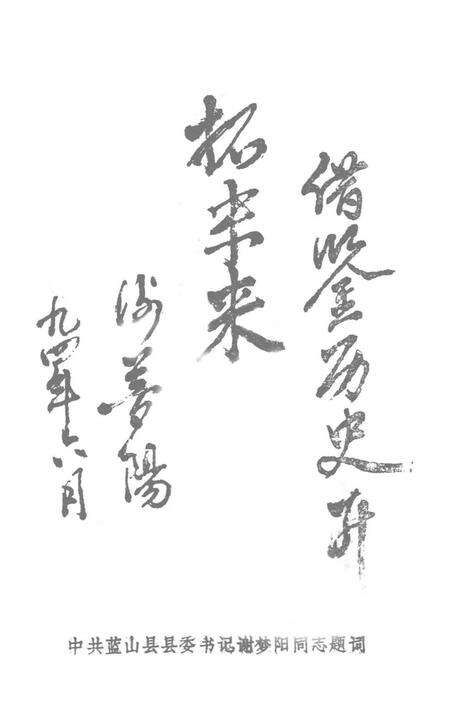 借鉴历史开
拓未来
谢梦阳
九四年六月
中共蓝山县县委书记谢梦阳同志题词